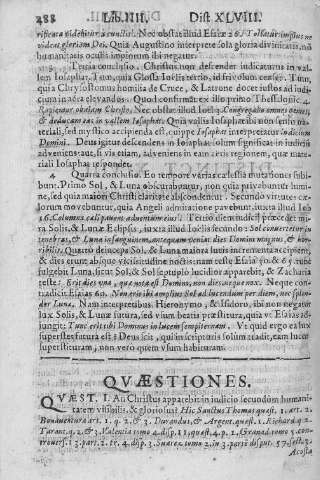 488 Lib. IIII. Dist. XLVIII.
rificata videbitur à cunctis. Nec obstat illud Esaiæ 26. Tollatur impius ne
videat gloriam Dei. Quia Augustino interprete sola gloria divinitatis, nō
humanitatis occulti impiorum ibi negatur.
Tertia conclusio. Christus non descendet iudicaturus in vallem
Iosaphat. Tum, quia Glossa Ioelis tertio, id frivolum censet. Tum,
quia Chrysostomus homilia de Cruce, & Latrone docet iustos ad iudicium
in aera elevandos. Quod confirmat ex illo primo Thessalonic. 4.
Rapientur obviam Christo. Nec obstat illud Ioel 3. Congregabo omnes gentes,
& deducam eas in vallem Iosaphat. Quia vallis Iosaphat
sed mystice accipienda est, cuippe Iosaphat interpretatur Iudicium
Domini. Deus igitur descendens in Iosaphat solum significat in iudicio
adveniens:
Iosaphat respondet.
Quarta conclusio. Eo tempore variæ cælestia mutationes subibunt:
Primo Sol, & Luna obscurabuntur, non quia privabuntur lumine,
sed quia maiori Christi claritate abscondentur. Secundo virtutes cælorum
movebuntur, quia Angeli admiratione pavebunt, iuxta illud Iob
26. Columnæ cæli pavent adventum eius. Tertio diem iudicij præcedet mira
Solis, & Lunæ Eclipsis, iuxta illud Ioelis secundo: Sol convertetur in
tenebras, & Luna in sanguinem, antequam veniat dies Domini magnus, & horribilis.
Quarto deinceps Sol, & Luna maiora lucis incrementa recipient,
& dies erunt absque vicissitudine noctis: nam teste Esaia 30. & 65. tunc
fulgebit Luna, sicut Sol, & Sol septuplo lucidior apparebit, & Zacharia
teste: Erit dies una, quæ nota est Domino, non dies, neque nox. Neque contradicit
Esaias 60. Non erit ibi amplius Sol ad lucendum per diem, nec splendor
Lunæ. Nam interpretibus Hieronymo, & Isidoro, ibi non negatur
lux Solis, & Lunæ futura, sed usum beatis præstitura, quia ut Esaias adiungit:
Tunc erit tibi Dominus in lucem sempiternam. Ut quid ergo ea lux
superstes futura est? Deus scit, qui in scripturis solum tradit, eam lucem
superstituram, non vero quem usum habituram.
QVÆSTIONES.
QVÆST. I. An Christus apparebit in iudicio secundum humanitatem
visibilis, & gloriosus? Hic Sanctus Thomas quæst. 1. art. 2.
Bonaventura art. 1. q. 2. & 3. Durandus, & Argent. quæst. 1. Richard. q. 2.
Tarant. q. 2. & 3. Valentia tomo 4. disp. 11. quæst. 4. p. 2. Granad. tomo 5. controvers.
13. part. 2. tr. 4. disp. 3. Suarez tomo 2. in 3. part. disput. 57. sect. 3.
Acosta